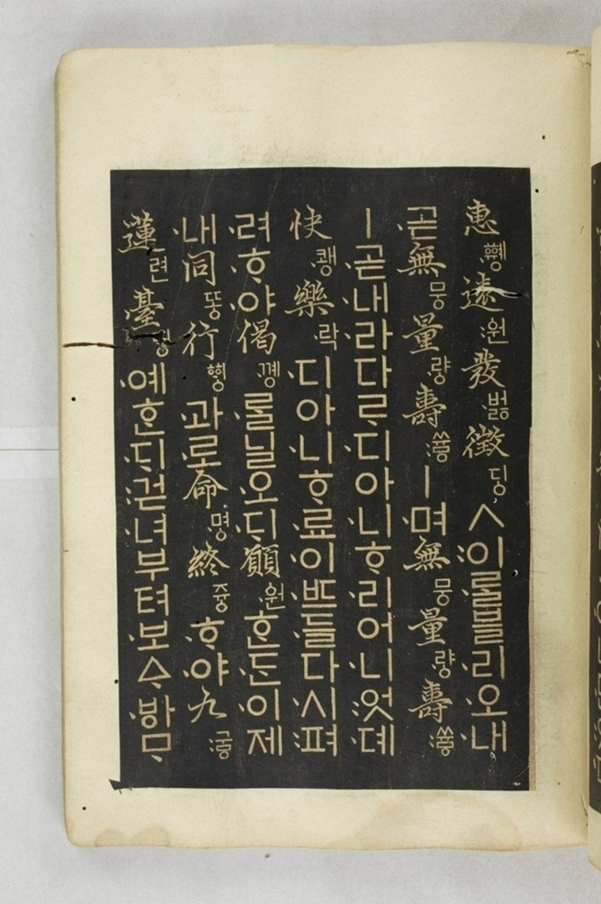 惠ᅘᆒᆼ遠:원發벓徵딩ㅅ:이ᄅᆞᆯ블·리오·내
곧無뭉量·량壽:쓩ㅣ·며無뭉量·량壽:쓩
ㅣ·곧·내·라다ᄅᆞ·디아·니ᄒᆞ·리어·니:엇:뎨
快·쾡樂·락·디아·니·ᄒᆞ:료·이·ᄠᅳ·들다·시·펴
려·ᄒᆞ·야偈·꼥·ᄅᆞᆯ닐·오·ᄃᆡ願·원ᄒᆞᆫ·ᄃᆞᆫ·이제
·내同똥行ᅘᆡᆼ·과·로命·명終즁·ᄒᆞ·야九:굴
蓮련臺·예ᄒᆞᆫ·ᄃᆡ:걷:녀부텨·보·ᅀᆞ·ᄫᅡᆷ